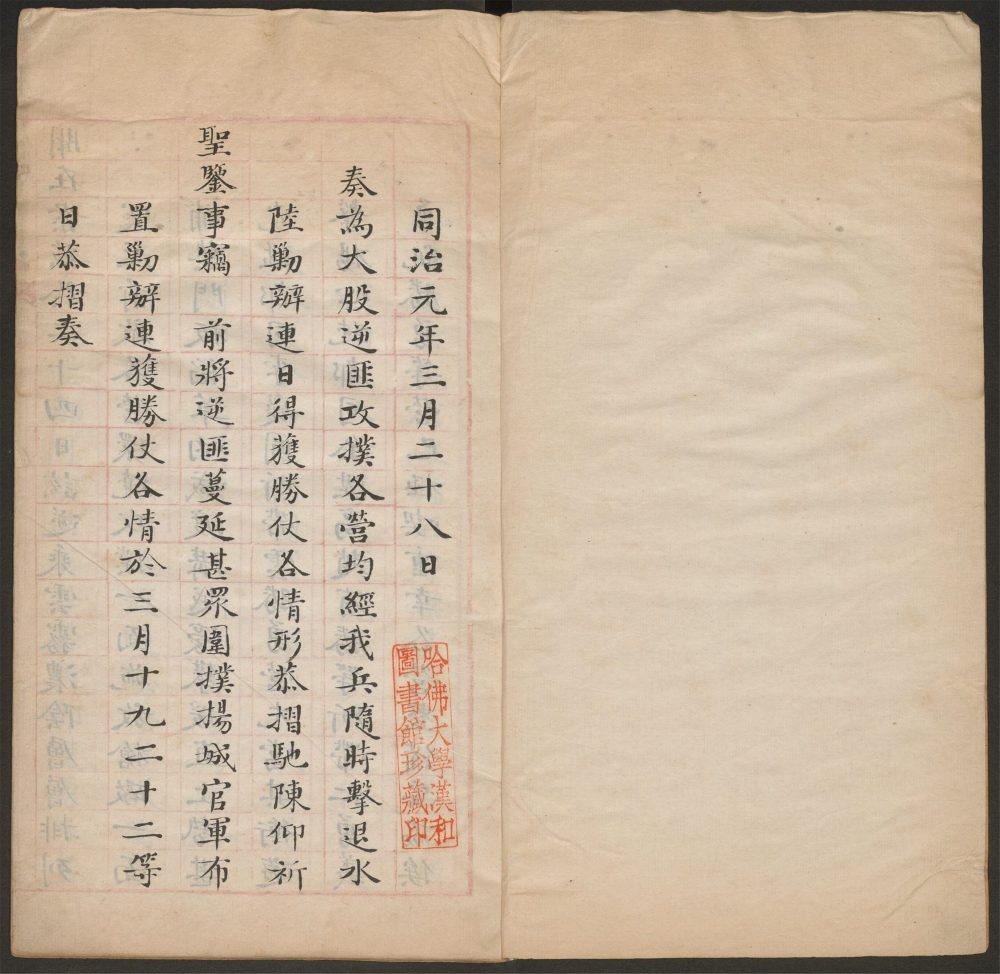 同治元年三月二十八日
奏為大股逆匪攻撲各營均經我兵隨時擊退水
陸勦辦連日得獲勝仗各情形恭摺馳陳仰祈
聖鑒事竊 前將逆匪蔓延甚眾圍撲揚城官軍布
置勦辦連獲勝仗各情於三月十九二十二等
日恭摺奏
哈佛大學漢和
圖書館珍藏印